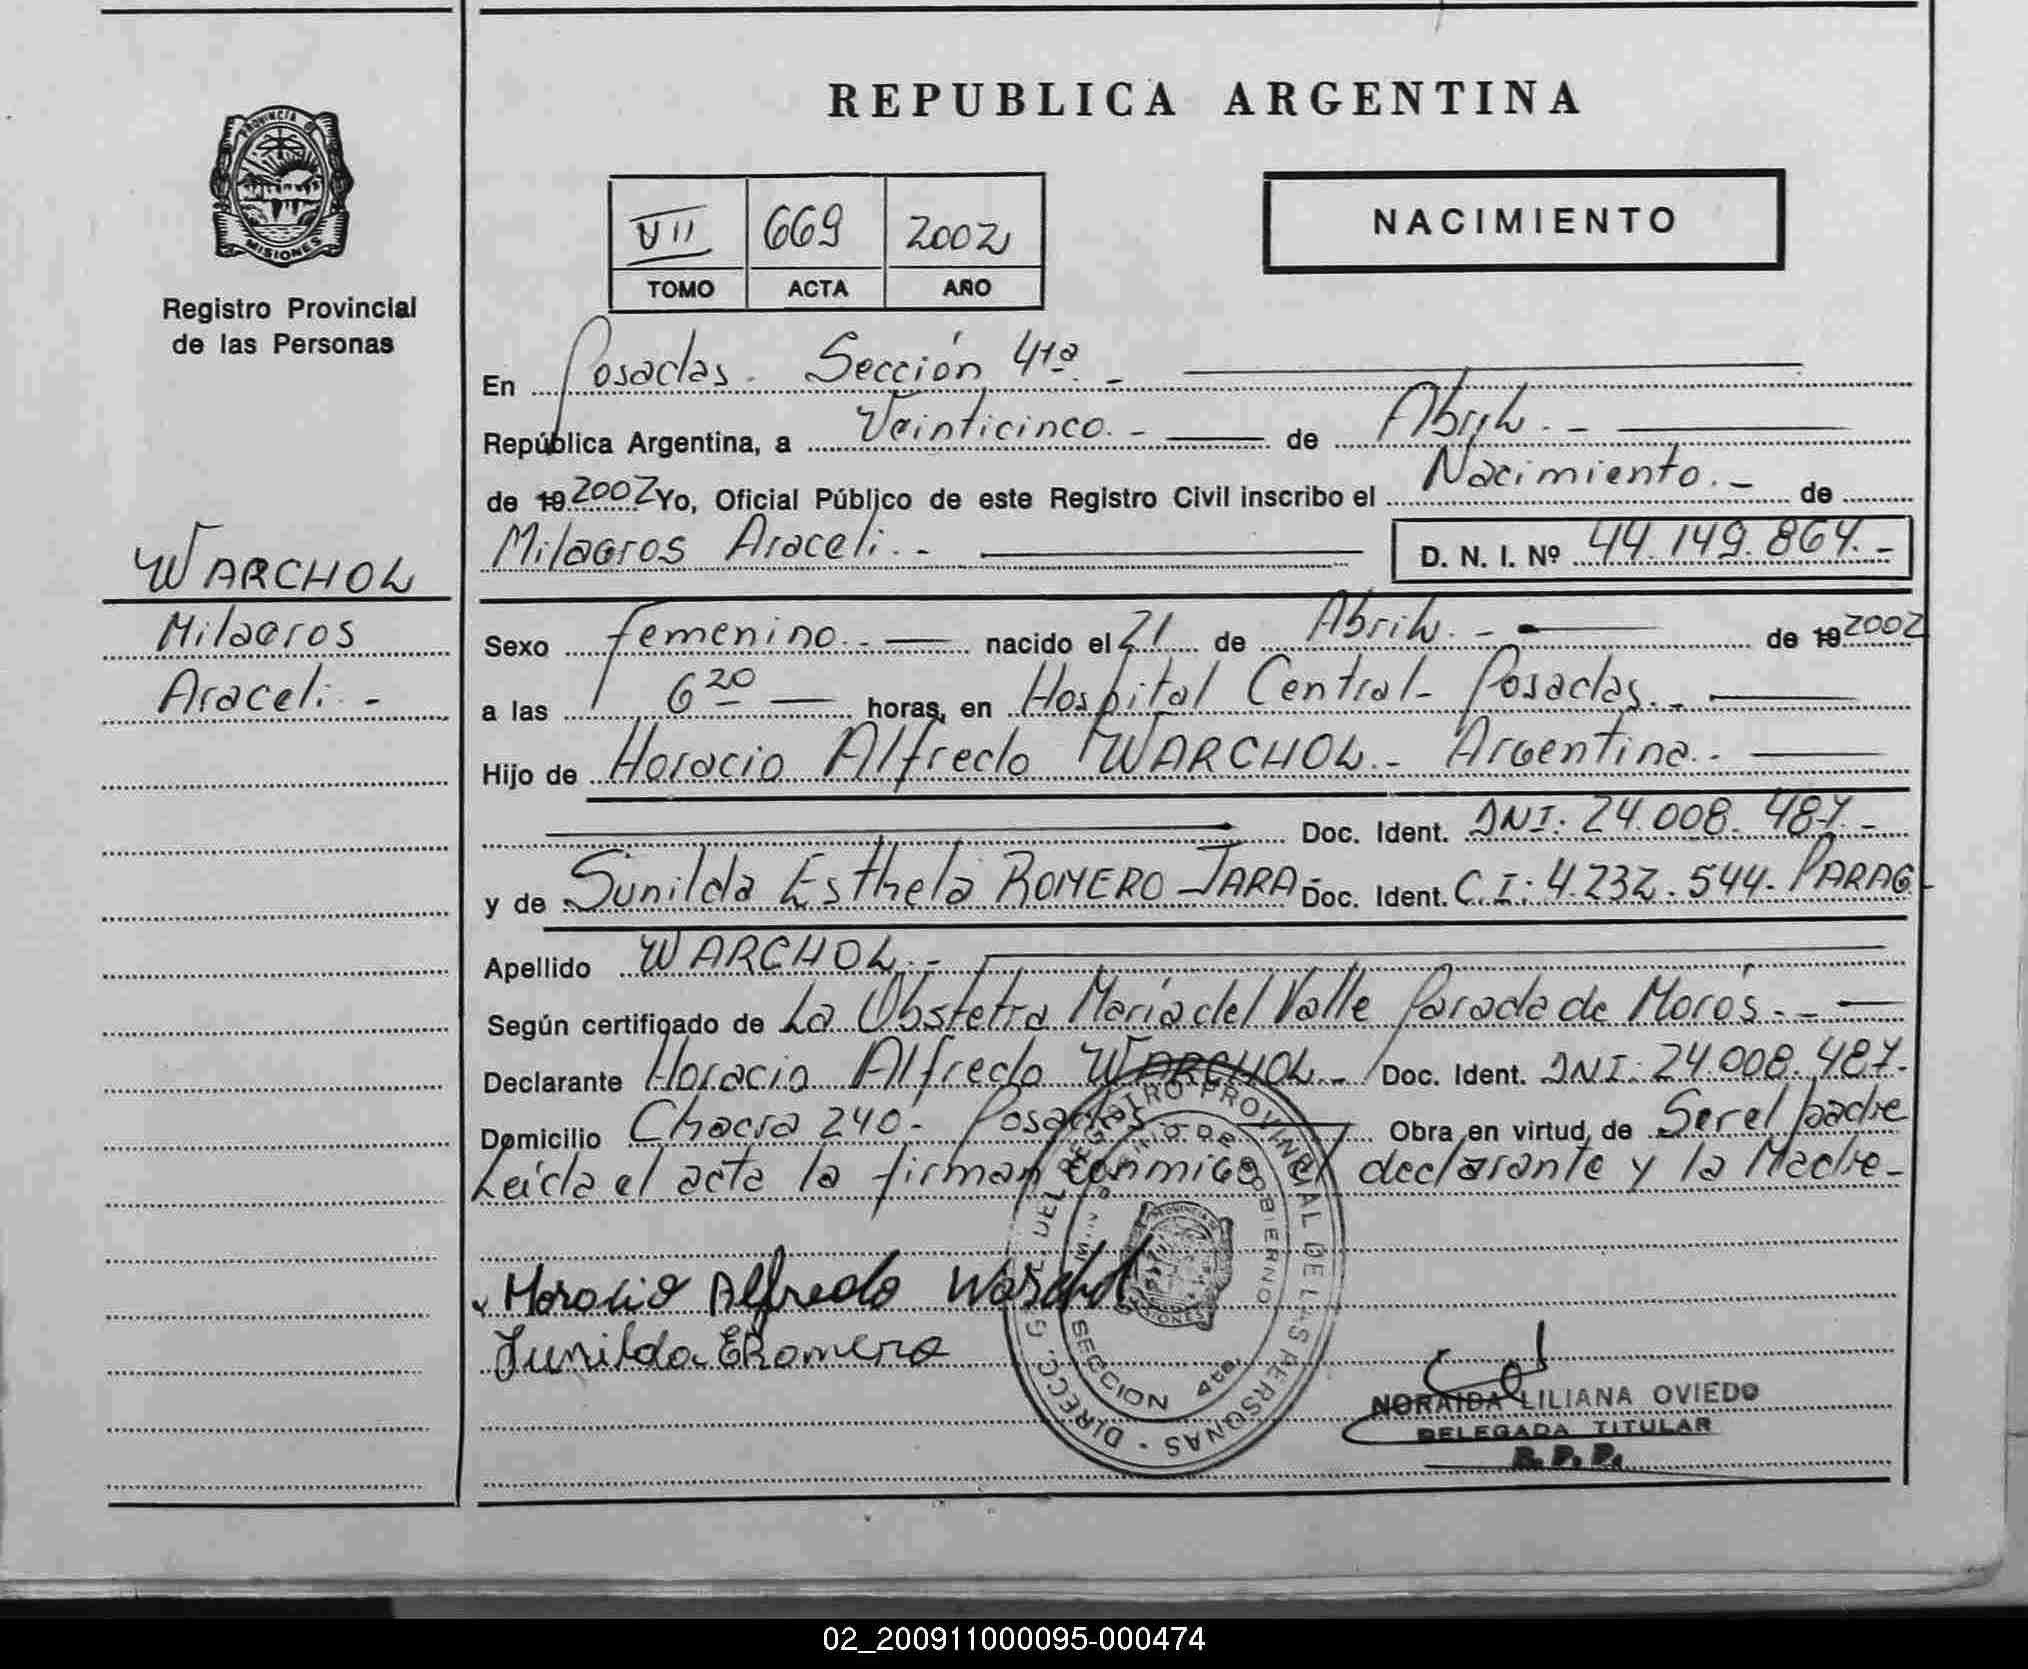 REPUBLICA ARGENTINA
PROVINCIA DE
MISIONES
Registro Provincial
de las Personas
VII 669 2002
TOMO ACTA AÑO
NACIMIENTO
En Posadas. Sección 4ta. -
República Argentina, a Veinticinco. - de Abril. -
de 19 2002 Yo, Oficial Público de este Registro Civil inscribo el Nacimiento. - de
Milagros Araceli. - D. N. I. Nº 44.149.864. -
WARCHOL
Milagros
Araceli -
Sexo femenino. - nacido el 21 de Abril. - de 19 2002
a las 6 20 horas, en Hospital Central - Posadas. -
Hijo de Horacio Alfredo WARCHOL. - Argentina. -
Doc. Ident. DNI: 24.008.487. -
y de Sunilda Esthela ROMERO JARA - Doc. Ident. C.I: 4.232.544 - PARAG. -
Apellido WARCHOL. -
Según certificado de La Obstetra María del Valle Parada de Morós. -
Declarante Horacio Alfredo WARCHOL. - Doc. Ident. DNI: 24.008.487. -
Domicilio Chacra 240 - Posadas. Obra en virtud de Ser el padre
Leída el acta la firman conmigo el declarante y la Madre -
Horacio Alfredo Warchol
Sunilda E Romero
DIRECC. G. DEL REGISTRO PROVINCIAL DE LAS PERSONAS
MIN DE GOBIERNO
SECCION 4ta.
NORAIDA LILIANA OVIEDO
DELEGADA TITULAR
R. P. P.
02_200911000095-000474